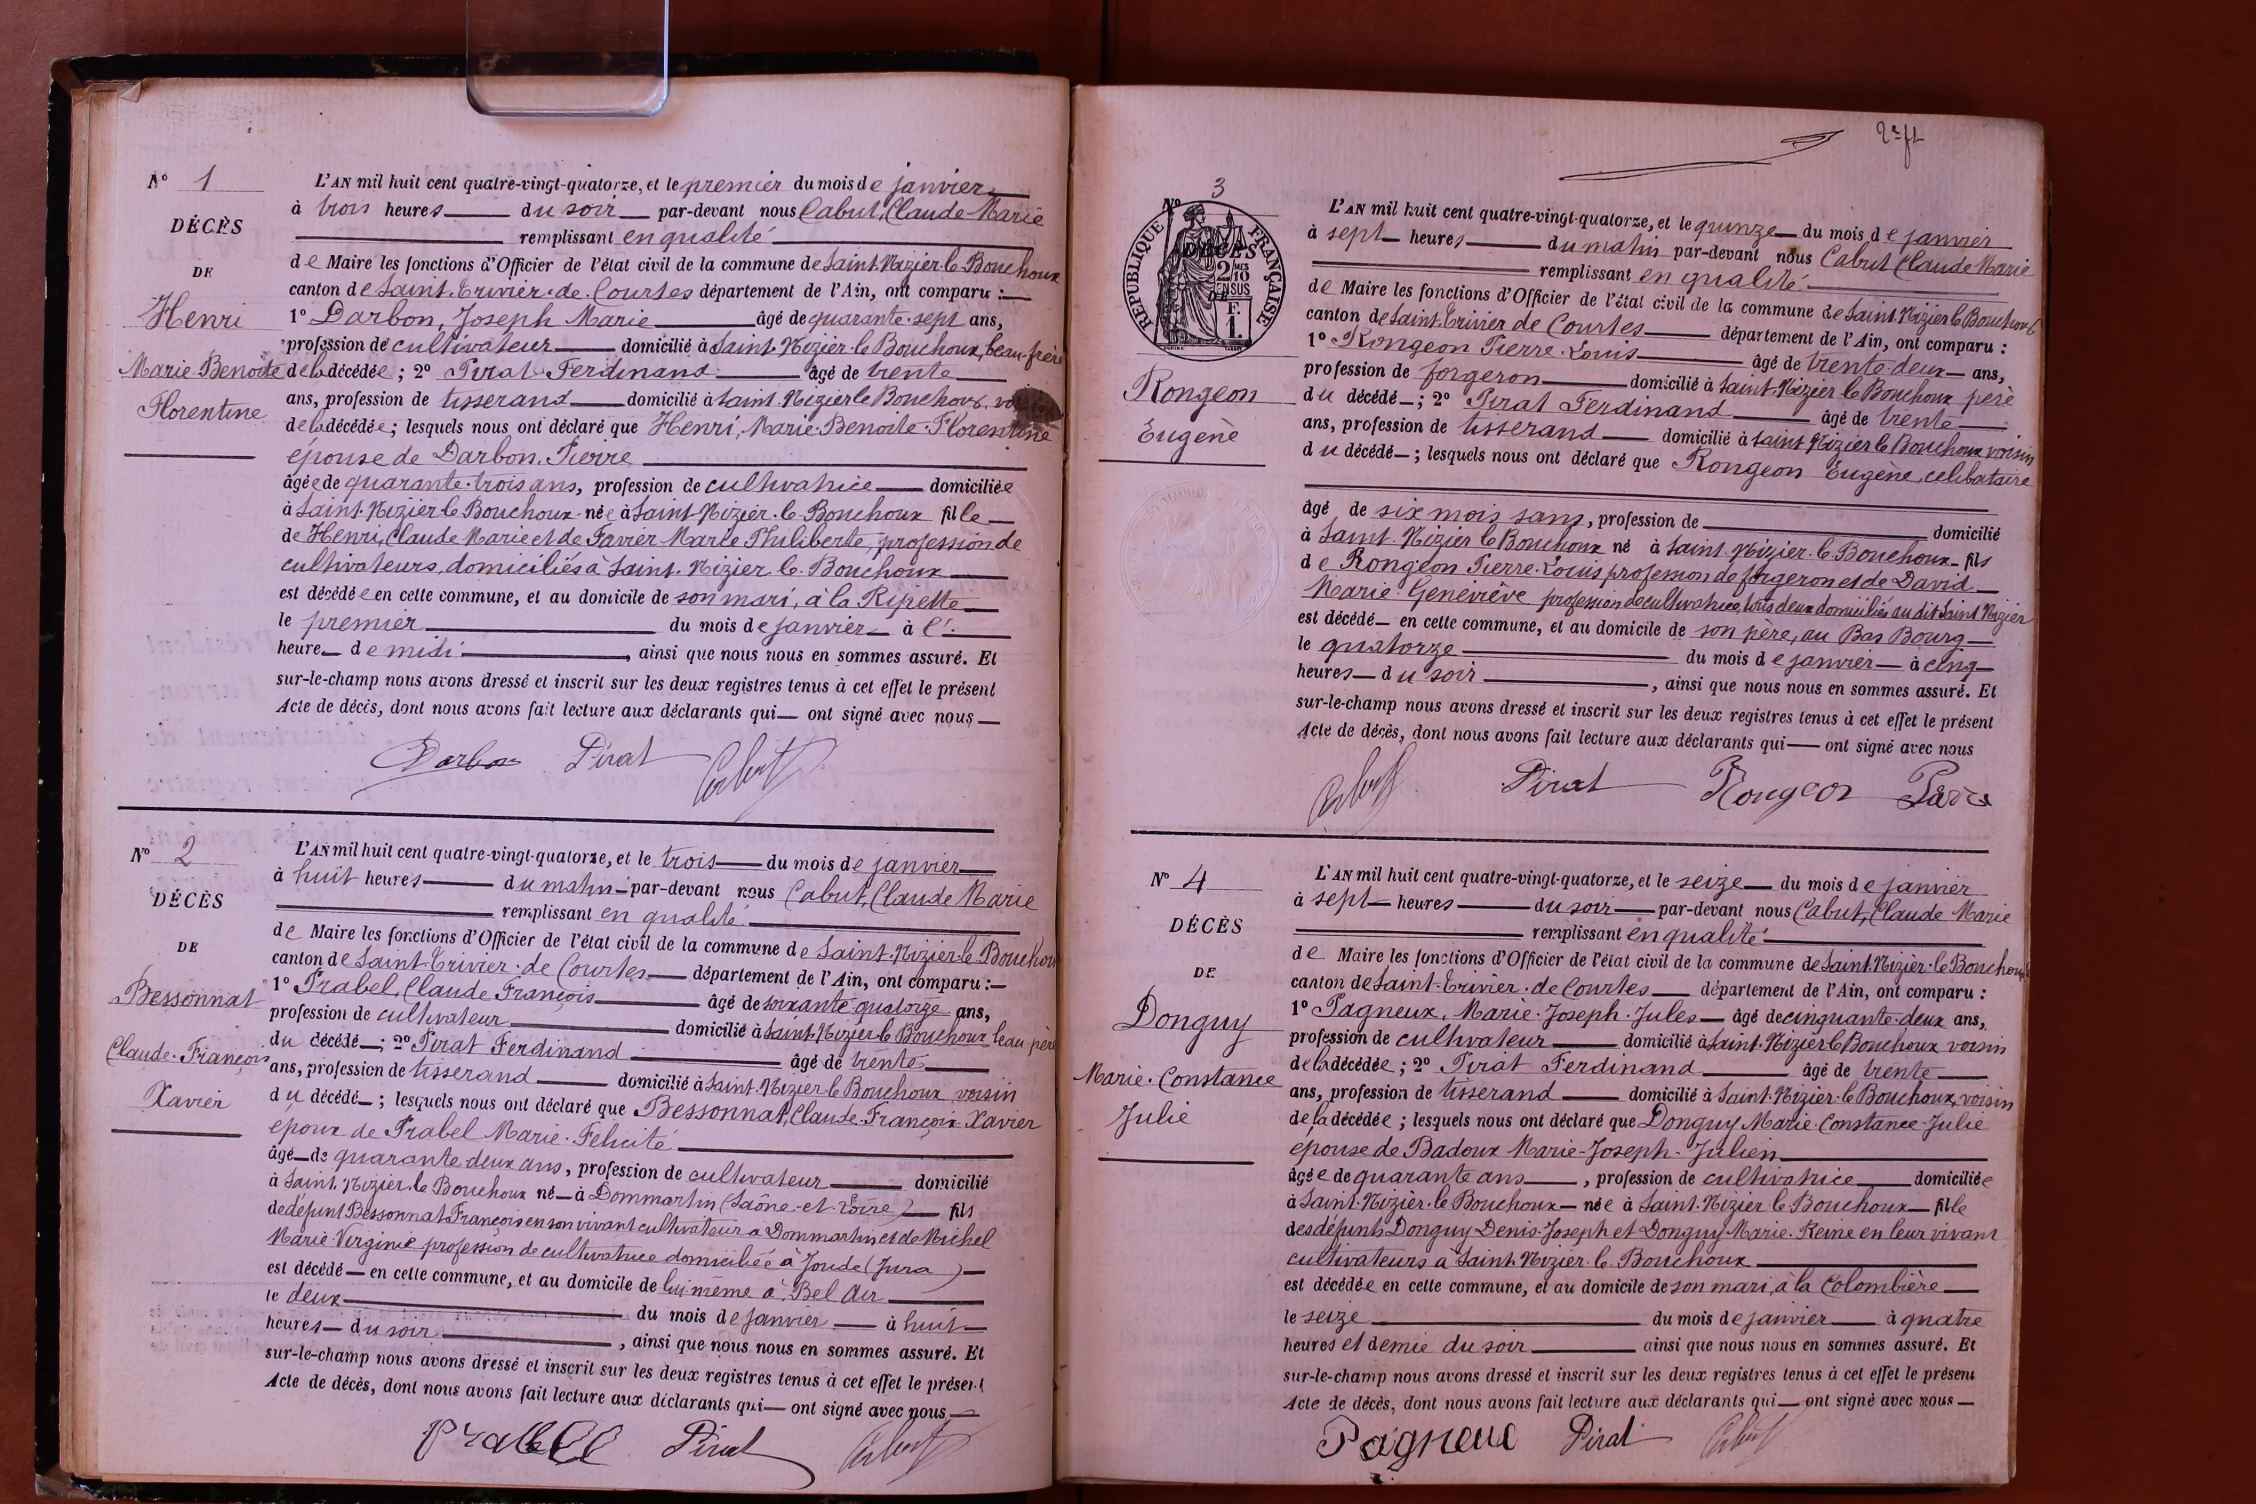 N° 1
DÉCÈS
DE
Henri
Marie Benoite
Florentine
L'AN mil huit cent quatre-vingt-quatorze, et le premier du mois de janvier
à trois heures du soir par-devant nous Cabut, Claude-Marie
remplissant en qualité
de Maire les fonctions d'Officier de l'état civil de la commune de Saint-Nizier-le Bouchoux
canton de Saint-Trivier-de-Courtes département de l'Ain, ont comparu :
1° Darbon, Joseph Marie âgé de quarante-sept ans,
profession de cultivateur domicilié à Saint-Nizier-le Bouchoux, beau-frère
de la décédée ; 2° Pirat Ferdinand âgé de trente
ans, profession de tisserand domicilié à Saint-Nizier le Bouchoux,
de la décédée ; lesquels nous ont déclaré que Henri, Marie-Benoite-Florentine
épouse de Darbon, Pierre
âgée de quarante-trois ans, profession de cultivatrice domiciliée
à Saint-Nizier le Bouchoux née à Saint-Nizier-le-Bouchoux fille
de Henri, Claude Marie et de Favier Marie Philiberte, profession de
cultivateurs, domiciliés à Saint-Nizier le-Bouchoux
est décédée en cette commune, et au domicile de son mari, à la Ripette
le premier du mois de janvier à l'
heure de midi, ainsi que nous nous en sommes assuré. Et
sur-le-champ nous avons dressé et inscrit sur les deux registres tenus à cet effet le présent
Acte de décès, dont nous avons fait lecture aux déclarants qui ont signé avec nous
Darbon Pirat Cabut
N° 2
DÉCÈS
DE
Bessonnat
Claude-François
Xavier
L'AN mil huit cent quatre-vingt-quatorze, et le trois du mois de janvier
à huit heures du matin par-devant nous Cabut, Claude Marie
remplissant en qualité
de Maire les fonctions d'Officier de l'état civil de la commune de Saint-Nizier-le Bouchoux
canton de Saint-Trivier-de Courtes département de l'Ain, ont comparu :
1° Prabel, Claude François âgé de soixante-quatorze ans,
profession de cultivateur domicilié à Saint-Nizier-le Bouchoux beau-père
du décédé ; 2° Pirat Ferdinand âgé de trente
ans, profession de tisserand domicilié à Saint-Nizier-le Bouchoux voisin
du décédé ; lesquels nous ont déclaré que Bessonnat, Claude-François-Xavier
époux de Prabel Marie-Félicité
âgé de quarante-deux ans, profession de cultivateur domicilié
à Saint-Nizier-le Bouchoux né à Dommartin (Saône-et-Loire) fils
de défunt Bessonnat François en son vivant cultivateur à Dommartin et de Michel
Marie-Virginie profession de cultivatrice domiciliée à Joude (Jura)
est décédé en cette commune, et au domicile de lui-même à Bel Air
le deux du mois de janvier à huit
heures du soir, ainsi que nous nous en sommes assuré. Et
sur-le-champ nous avons dressé et inscrit sur les deux registres tenus à cet effet le présent
Acte de décès, dont nous avons fait lecture aux déclarants qui ont signé avec nous
Prabel Pirat Cabut
N° 3
RÉPUBLIQUE FRANÇAISE
2/10 EN SUS
F. 1.
DÉCÈS
DE
Rongeon
Eugène
L'AN mil huit cent quatre-vingt-quatorze, et le quinze du mois de janvier
à sept heures du matin par-devant nous Cabut Claude Marie
remplissant en qualité
de Maire les fonctions d'Officier de l'état civil de la commune de Saint-Nizier le Bouchoux
canton de Saint-Trivier de Courtes département de l'Ain, ont comparu :
1° Rongeon Pierre-Louis âgé de trente-deux ans,
profession de forgeron domicilié à Saint-Nizier le Bouchoux père
du décédé ; 2° Pirat Ferdinand âgé de trente
ans, profession de tisserand domicilié à Saint Nizier le Bouchoux voisin
du décédé ; lesquels nous ont déclaré que Rongeon Eugène, célibataire
âgé de six mois sans, profession de domicilié
à Saint-Nizier le Bouchoux né à Saint-Nizier-le-Bouchoux fils
de Rongeon Pierre-Louis profession de forgeron et de David
Marie-Geneviève profession de cultivatrice, tous deux domiciliés au dit Saint Nizier
est décédé en cette commune, et au domicile de son père, au Bas Bourg
le quatorze du mois de janvier à cinq
heures du soir, ainsi que nous nous en sommes assuré. Et
sur-le-champ nous avons dressé et inscrit sur les deux registres tenus à cet effet le présent
Acte de décès, dont nous avons fait lecture aux déclarants qui ont signé avec nous
Cabut Pirat Rongeon
N° 4
DÉCÈS
DE
Donguy
Marie-Constance
Julie
L'AN mil huit cent quatre-vingt-quatorze, et le seize du mois de janvier
à sept heures du soir par-devant nous Cabut, Claude Marie
remplissant en qualité
de Maire les fonctions d'Officier de l'état civil de la commune de Saint-Nizier-le Bouchoux
canton de Saint-Trivier-de Courtes département de l'Ain, ont comparu :
1° Pagneux, Marie-Joseph-Jules âgé de cinquante-deux ans,
profession de cultivateur domicilié à Saint-Nizier le Bouchoux voisin
de la décédée ; 2° Pirat Ferdinand âgé de trente
ans, profession de tisserand domicilié à Saint-Nizier-le Bouchoux, voisin
de la décédée ; lesquels nous ont déclaré que Donguy Marie-Constance-Julie
épouse de Badoux Marie-Joseph-Julien
âgée de quarante ans, profession de cultivatrice domiciliée
à Saint-Nizier-le Bouchoux née à Saint-Nizier le Bouchoux fille
des défunts Donguy Denis-Joseph et Donguy Marie-Reine en leur vivant
cultivateurs à Saint-Nizier-le-Bouchoux
est décédée en cette commune, et au domicile de son mari, à la Colombière
le seize du mois de janvier à quatre
heures et demie du soir ainsi que nous nous en sommes assuré. Et
sur-le-champ nous avons dressé et inscrit sur les deux registres tenus à cet effet le présent
Acte de décès, dont nous avons fait lecture aux déclarants qui ont signé avec nous
Pagneux Pirat Cabut